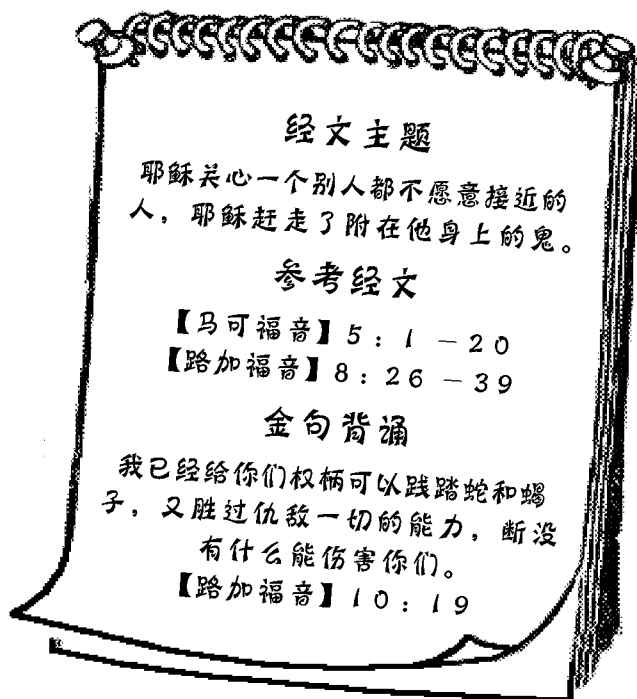 经文主题
耶稣关心一个别人都不愿意接近的
人，耶稣赶走了附在他身上的鬼。
参考经文
【马可福音】5：1－20
【路加福音】8：26－39
金句背诵
我已经给你们权柄可以践踏蛇和蝎
子，又胜过仇敌一切的能力，断没
有什么能伤害你们。
【路加福音】10：19